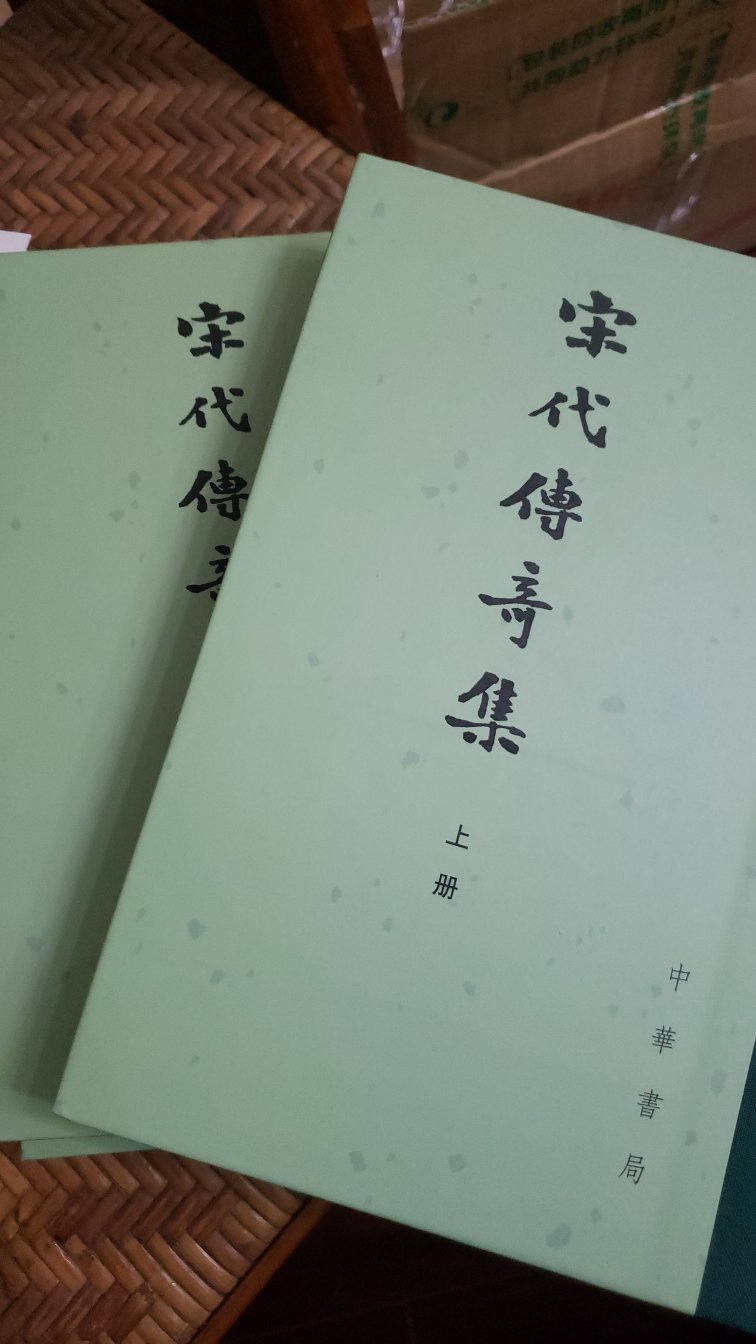 宋代傳奇集
上册
中華書局
宋代傳奇